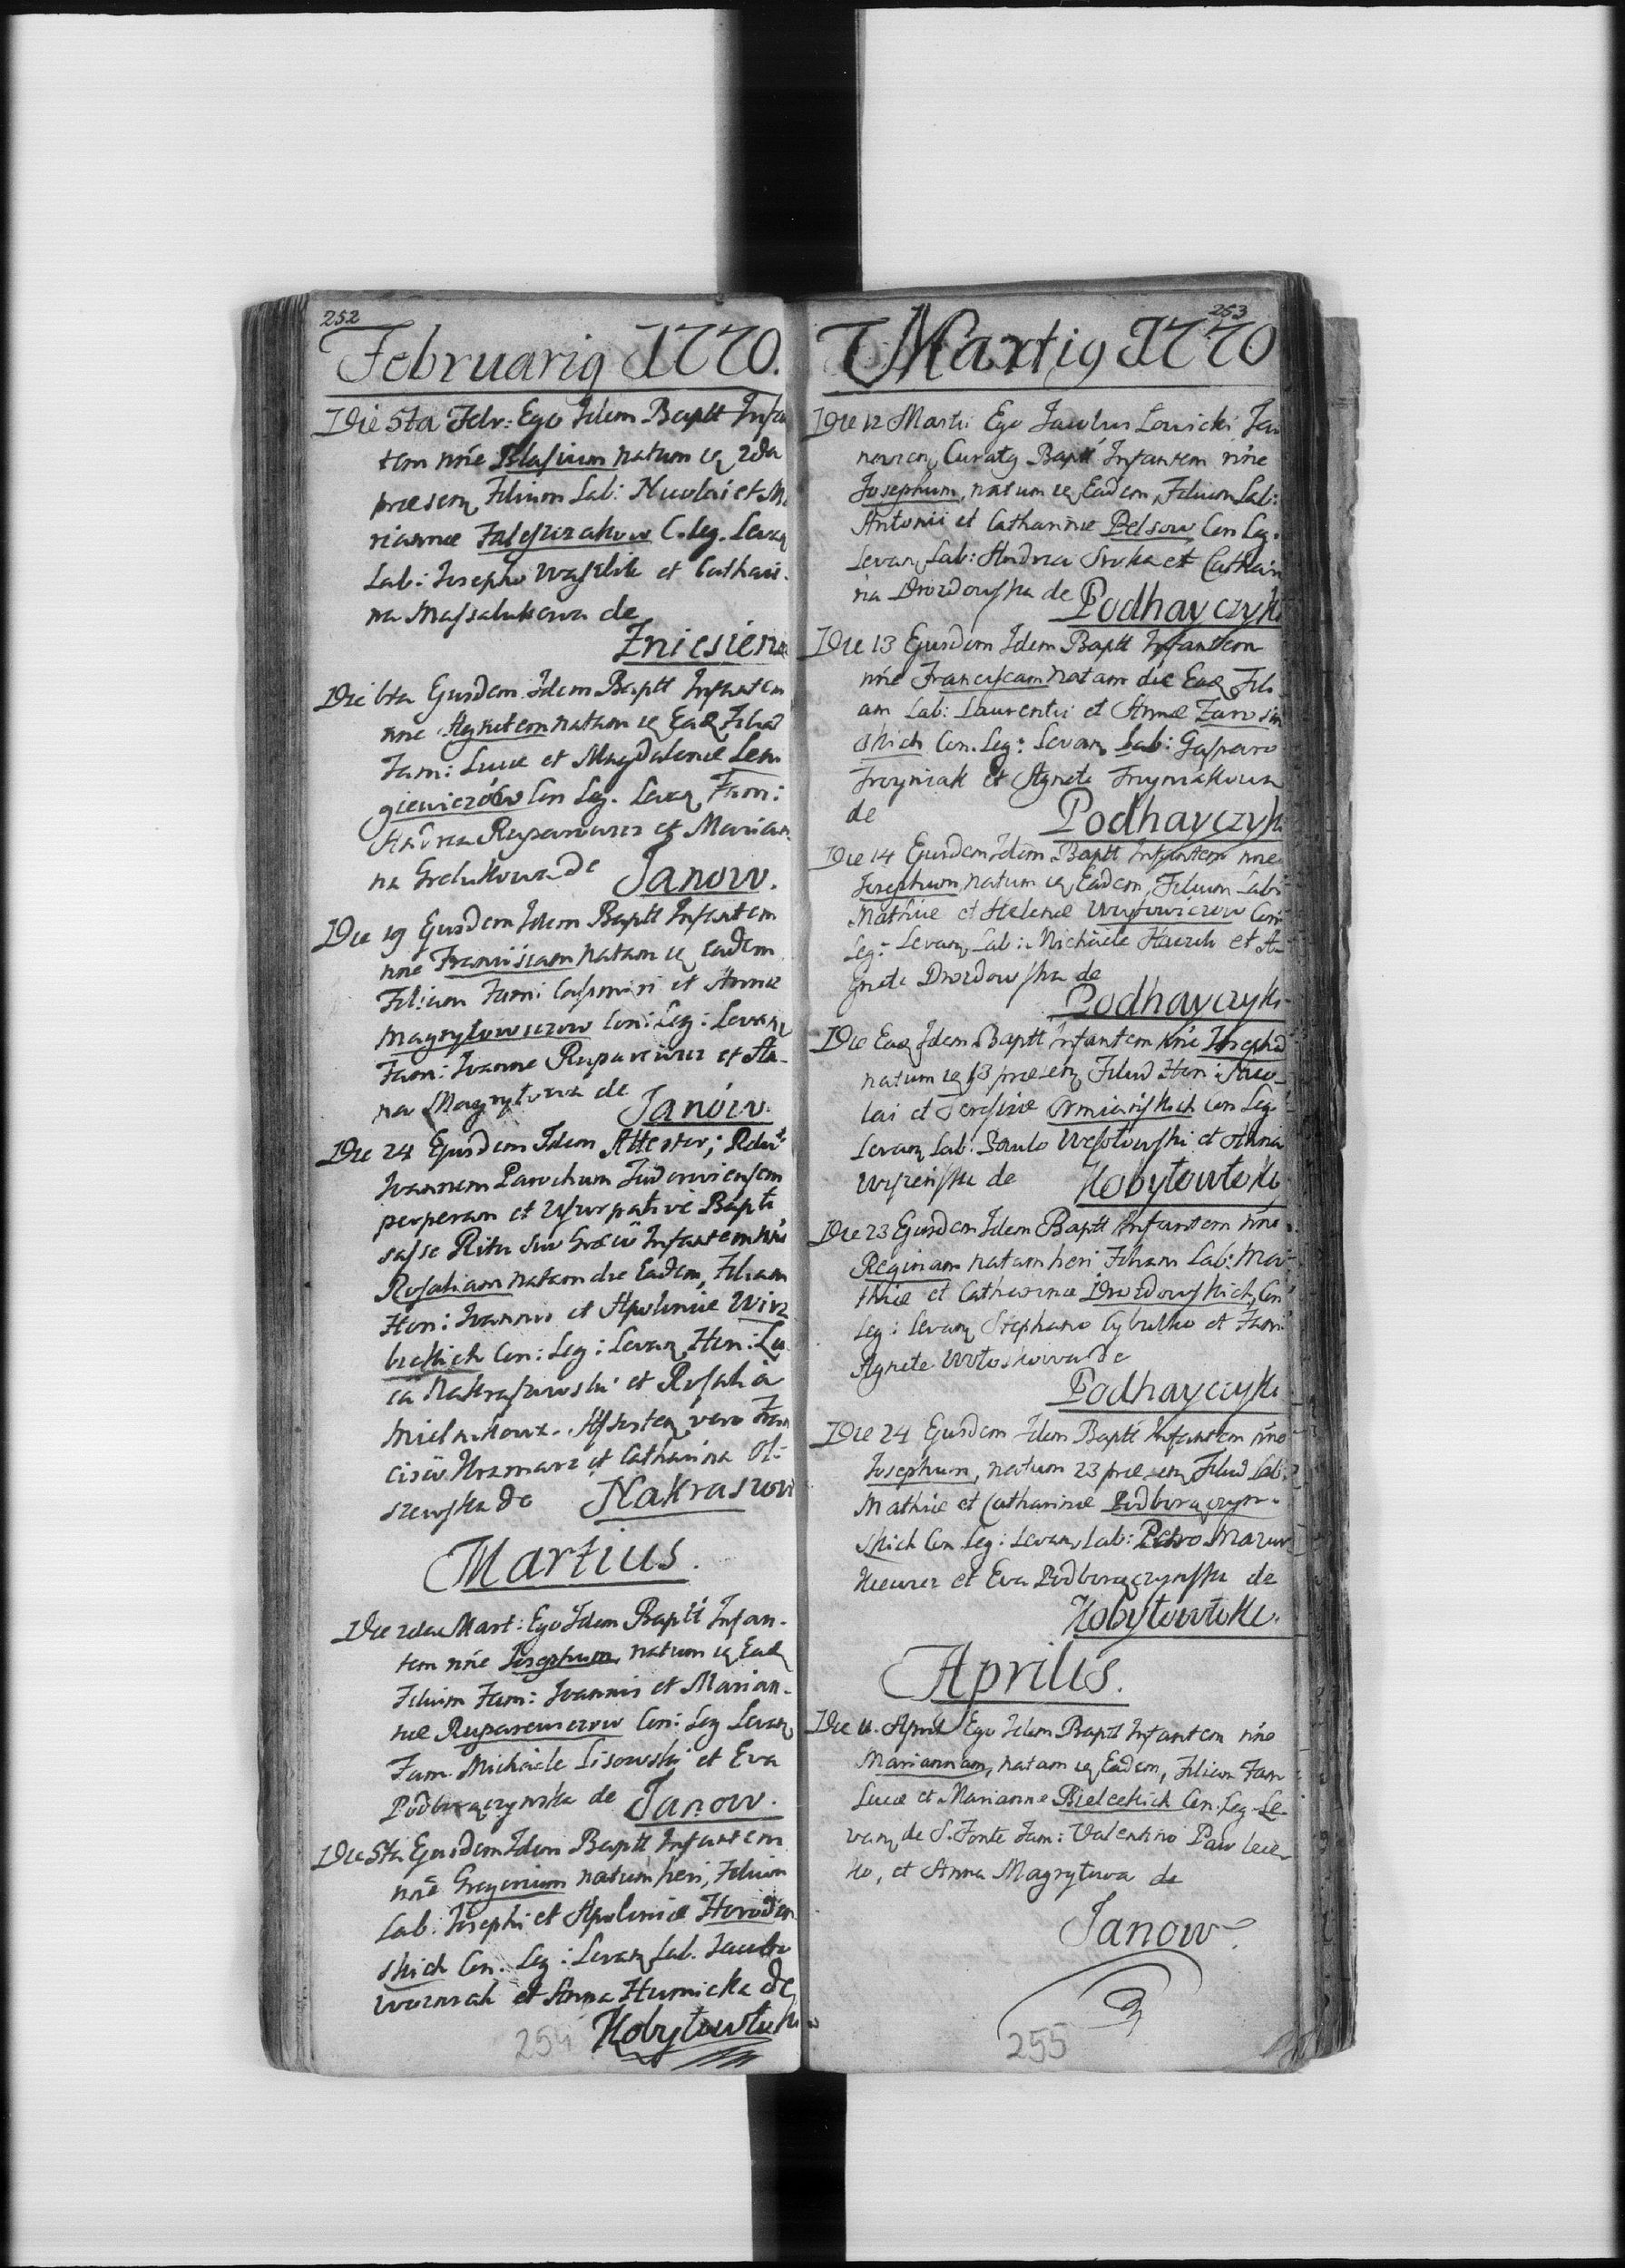 252
Februarig 1770.
Die 5ta Febr: Ego Idem Baptt Infan
tem nne Blasium natum 2da
praesen, Filium Lab: Nicolai et M
rianna C. leg. Levan
Lab: Josepho Wasilik et Cathari-
na Massalukowa de
Zniesien
Die 6ta Ejusdem Idem Baptt Infantem
nne Agnetem natam Ead Filia
Fam: Lucae et Magdalenae Len
giewiczów Con Leg. Levan Fam:
Andrea Ruparewicz et Marian
na de Janow.
Die 19 Ejusdem Idem Baptt Infantem
nne Franciscam natam eadem
Filiam Fam: Casimiri et Anna
Magrytowiczow Con: Leg: Levan
Fam: Ivanne Ruparewicz et An-
na Magrytowa de Janów.
Die 24 Ejusdem Idem Attestor;
Ivannem Parochum
perperam et Usurpative Bapti
sasse Ritu suo Graeco Infantem nne
Rosaliam natam die Eadem, Filiam
Hon: Ivannis et Apolinae Wirz
bickich Con: Leg: Levan Hon: Lu
ca Nakraszewski et Rosalia
Mielnikowa. Assisten vero Fran
cisco Kramarz et Catharina Ol-
szewska de Nakraszow
Martius.
Die 2da Mart: Ego Idem Baptt Infan-
tem nne Josephum, natum Ead
Filium Fam: Ivannis et Marian-
nae Ruparewiczow Con: Leg Levan
Fam. Michaele Lisowski et Eva
Podhraczynska de Janow.
Die 5ta Ejusdem Idem Baptt Infantem
nne Gregorium natum heri, Filium
Lab: Josephi et Apolinae Horodin
skich Con. Leg: Levan Lab. Jacobo
Wozniak et Anna Humicka de
Kobytowtok
254
253
Martig 1770
Die 12 Martii Ego Jacobus Lowicki Ja
novien Curatg Baptt Infantem nne
Josephum, natum Eadem, Filium Lab:
Antonii et Catharinae Belsow Con Leg.
Levan Lab: Andrea Sroka et Cathari
na Drozdowska de Podhayczyk
Die 13 Ejusdem Idem Baptt Infantem
nne Franciscam natam die Ead Fili
am Lab: Laurentii et Annae Zarosin
skich Con. Leg: Levan Lab: Gasparo
Frozniak et Agnete
de Podhayczyk
Die 14 Ejusdem Idem Baptt Infantem nne
Josephum natum Eadem, Filium Lab:
Mathiae et Helenae Wuytowiczow Con
Leg: Levan, Lab: Michaele et A-
gnete Drozdowska de
Podhayczyk
Die Ead Idem Baptt Infantem nne Josephu
natum 13 praesen Filiu Hon: Nico-
lai et Teresiae Ormianskich Con Leg
Levan Lab: Paulo Wesołowski et Anna
de Kobytowtoki
Die 23 Ejusdem Idem Baptt Infantem nne
Reginam natam heri Filiam Lab: Mat-
thiae et Catharinae Drozdowskich, Con
Leg: Levan Stephano Cybulko et Fam:
Agnete Wołoskowa de
Podhayczyk
Die 24 Ejusdem Idem Baptt Infantem nne
Josephum, natum 23 praesen, Filiu Lab:
Mathiae et Catharinae Podhoraczyn-
skich Con Leg: Levan Lab: Petro Mazur
kiewicz et Eva Podhoraczynska de
Kobytowtoki.
Aprilis.
Die 11. April Ego Idem Baptt Infantem nne
Mariannam, natam Eadem, Filiam Fam
Lucae et Marianne Bieleckich Con. Leg. Le-
van de S. Fonte Fam: Valentino
ko, et Anna Magrytowa de
Janow.
255